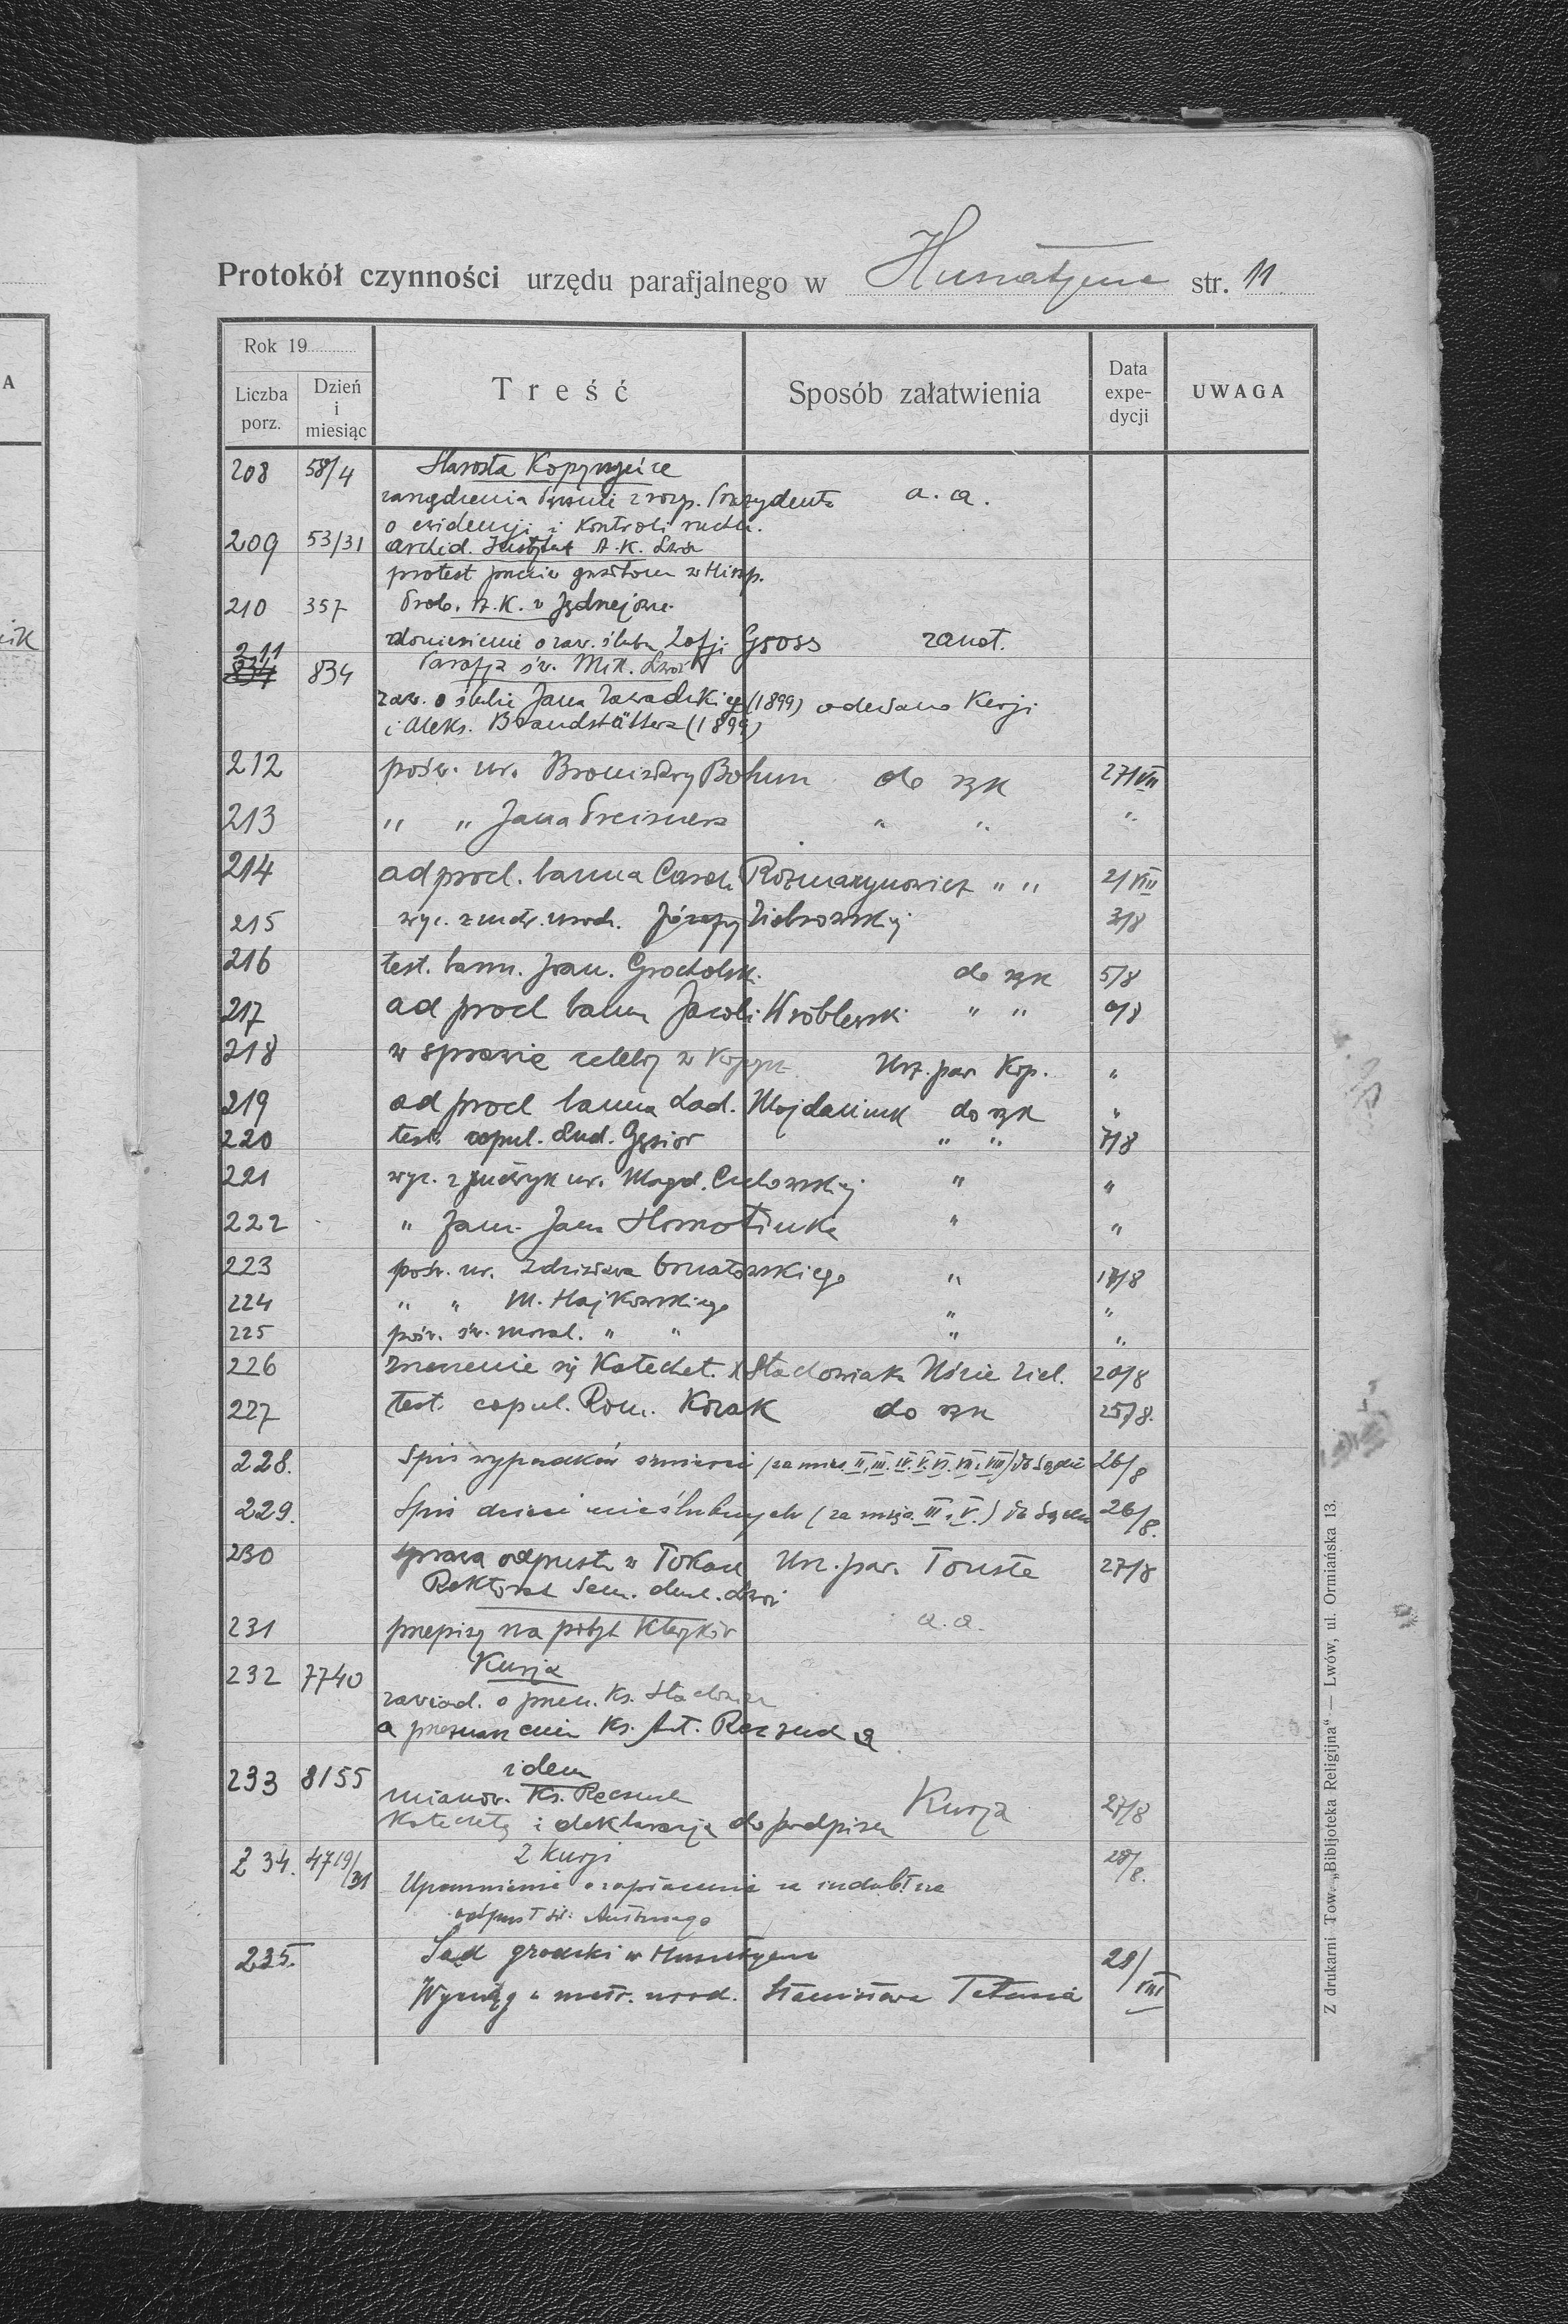 Protokół czynności urzędu parafjalnego w Husiatynie str. 11
Rok 19
Liczba porz. Dzień i miesiąc Treść Sposób załatwienia Data expe- dycji UWAGA
208 58/4 Starosta Kopyczyńce
a. a.
o ewidencji i kontroli ruchu.
209 53/31 Archid. Instytut A. K. Lwów
protest
210 357 A. K. w Jędrzejowie
doniesienie o zaw. ślubu Zofji Gross zanot.
211 834 Parafja św. Mik. Lwów
zaw. o ślubie Jana Zawadzkiego (1899) odesłano Kurji
i Aleks. Brandstättera (1899)
212 pośw. ur. Bronisławy Bohun do rąk 27/VII
213 " " Jana Preisnera " " "
214 ad procl. banna Carol. Rozmarynowicz " " 2/VIII
215 wyc. z metr. urodz. Józefy Ziobrowskiej 3/8
216 test. bann. Fran. Grocholski do rąk 5/8
217 ad procl bann Jacobi Wróblewski " "
218 w sprawie celebry w Kopycz. Urz. par. Kop. "
219 ad procl banna Lad. Wojdaliuk do rąk "
220 test. copul. Lud. Gąsior " " 7/8
221 wyc. z metryk ur. Magd. " "
222 " Jana " "
223 pośw. ur. Zdzisława " 17/8
224 " " M. Hajkowskiego " "
225 pośw. św. moral. " " " "
226 Katechet. X Stachowiaka Uście Ziel. 20/8
227 test. copul. Rom. Kozak do rąk 25/8.
228. Spis wypadków śmierci (za mies. II, III. IV. V. VI. VII. VIII) do Sądu 26/8
229. Spis dzieci nieślubnych (za mies. III i V.) do Sądu 26/8.
230 sprawa odpustu w Tokach Urz. par. Touste 27/8
Rektorat Sem. duch. Lwów
231 przepisy na pobyt kleryków a. a.
232 7740 Kurja
zawiad. o przen. Ks.
a przeznaczeniu Ks. Ant. Reczucha
233 8155 idem
mianow. Ks. Reczuch Kurja 27/8
Katechetą i deklaracja do podpisu
234. 4719/31 Z Kurji 28/8.
Upomnienie o zapłacenie za indult na
odpust św. Antoniego
235. Sąd grodzki w Husiatynie 28/VIII
Wyciąg z metr. urod. Stanisława
Z drukarni Tow. „Bibljoteka Religijna" — Lwów, ul. Ormiańska 13.